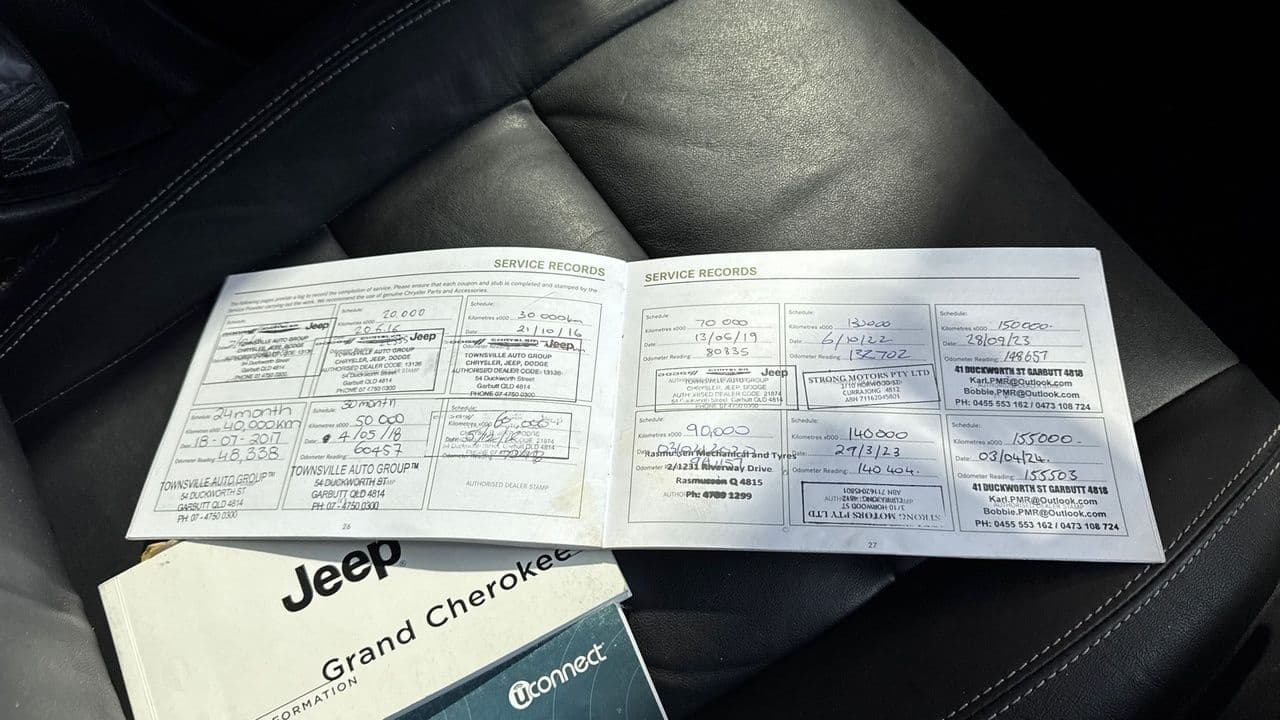 SERVICE RECORDS
The following pages provide a log to record the completion of service. Please ensure that each coupon and stub is completed and stamped by the
Service Provider carrying out the work. We recommend the use of genuine Chrysler Parts and Accessories.
Schedule:
Jeep
TOWNSVILLE AUTO GROUP
CHRYSLER, JEEP, DODGE
54 Duckworth Street
Garbutt QLD 4814
PHONE 07 4750 0300
Schedule:
20,000
Kilometres x000
Jeep
TOWNSVILLE AUTO GROUP
CHRYSLER, JEEP, DODGE
AUTHORISED DEALER CODE: 13136
54 Duckworth Street
Garbutt QLD 4814
PHONE 07 4750 0300
Schedule:
Kilometres x000 30 000km
Date: 21/10/16
CHRYSLER Jeep
TOWNSVILLE AUTO GROUP
CHRYSLER, JEEP, DODGE
AUTHORISED DEALER CODE: 13136
54 Duckworth Street
Garbutt QLD 4814
PHONE 07 4750 0300
Schedule: 24month
Kilometres x000 40,000km
Date: 18-07-2017
Odometer Reading: 48,338
TOWNSVILLE AUTO GROUP™
54 DUCKWORTH ST
GARBUTT QLD 4814
PH: 07 - 4750 0300
Schedule: 30month
Kilometres x000 50 000
Date: 4/05/18
60457
TOWNSVILLE AUTO GROUP™
54 DUCKWORTH ST
GARBUTT QLD 4814
PH: 07 - 4750 0300
Schedule:
Kilometres x000
AUTHORISED DEALER STAMP
26
SERVICE RECORDS
Schedule:
Kilometres x000 70 000
Date: 13/06/19
Odometer Reading: 80835
CHRYSLER Jeep
TOWNSVILLE AUTO GROUP
CHRYSLER, JEEP, DODGE
AUTHORISED DEALER CODE: 21874
54 Duckworth Street, Garbutt QLD 4814
PHONE 07 4750 0300
Schedule:
Kilometres x000 130000
Date: 6/10/22
Odometer Reading: 132702
STRONG MOTORS PTY LTD
3/10 HORWOOD ST
CURRAJONG 4812
ABN 71162045801
Schedule:
Kilometres x000 150000.
Date: 28/09/23
Odometer Reading: 148657
41 DUCKWORTH ST GARBUTT 4818
Karl.PMR@Outlook.com
Bobbie.PMR@Outlook.com
PH: 0455 553 162 / 0473 108 724
Schedule:
Kilometres x000 90,000
Date:
Odometer
Rasmussen Mechanical and Tyres
2/1231 Riverway Drive
Rasmussen Q 4815
Ph: 4789 1299
Schedule:
Kilometres x000 140000
Date: 27/3/23
Odometer Reading: 140404.
STRONG MOTORS PTY LTD
3/10 HORWOOD ST
CURRAJONG 4812
ABN 71162045801
Schedule:
Kilometres x000 155000.
Date: 03/04/24.
Odometer Reading: 155503
41 DUCKWORTH ST GARBUTT 4818
Karl.PMR@Outlook.com
Bobbie.PMR@Outlook.com
PH: 0455 553 162 / 0473 108 724
27
Jeep
Grand Cherokee
uconnect